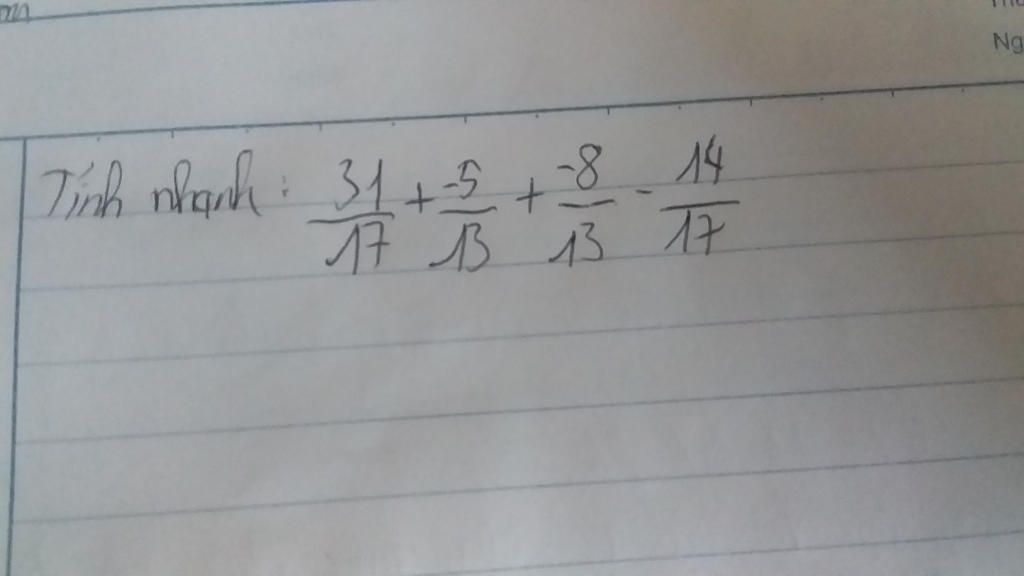 Ng
Tính nhanh: 31/17 + -5/13 + -8/13 - 14/17